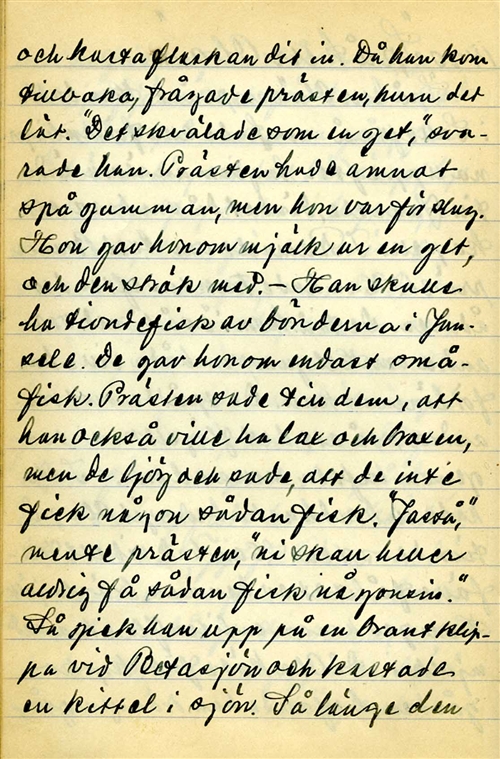 och kasta flaskan dit in. Då han kom
tillbaka, frågade prästen, huru det
lät. "Det skvälade som en get," sva-
rade han. Prästen hade ämnat
spå gumman, men hon var för slug.
Hon gav honom mjölk ur en get,
och den strök med. – Han skulle
ha tiondefisk av bönderna i Jun-
sele. De gav honom endast små-
fisk. Prästen sade till dem, att
han också ville ha lax och braxen,
men de ljög och sade, att de inte
fick någon sådan fisk. "Jasså,"
mente prästen, "ni skall heller
aldrig få sådan fisk någonsin."
Så gick han upp på en brant klip-
pa vid Betasjön och kastade
en kittel i sjön. Så länge den